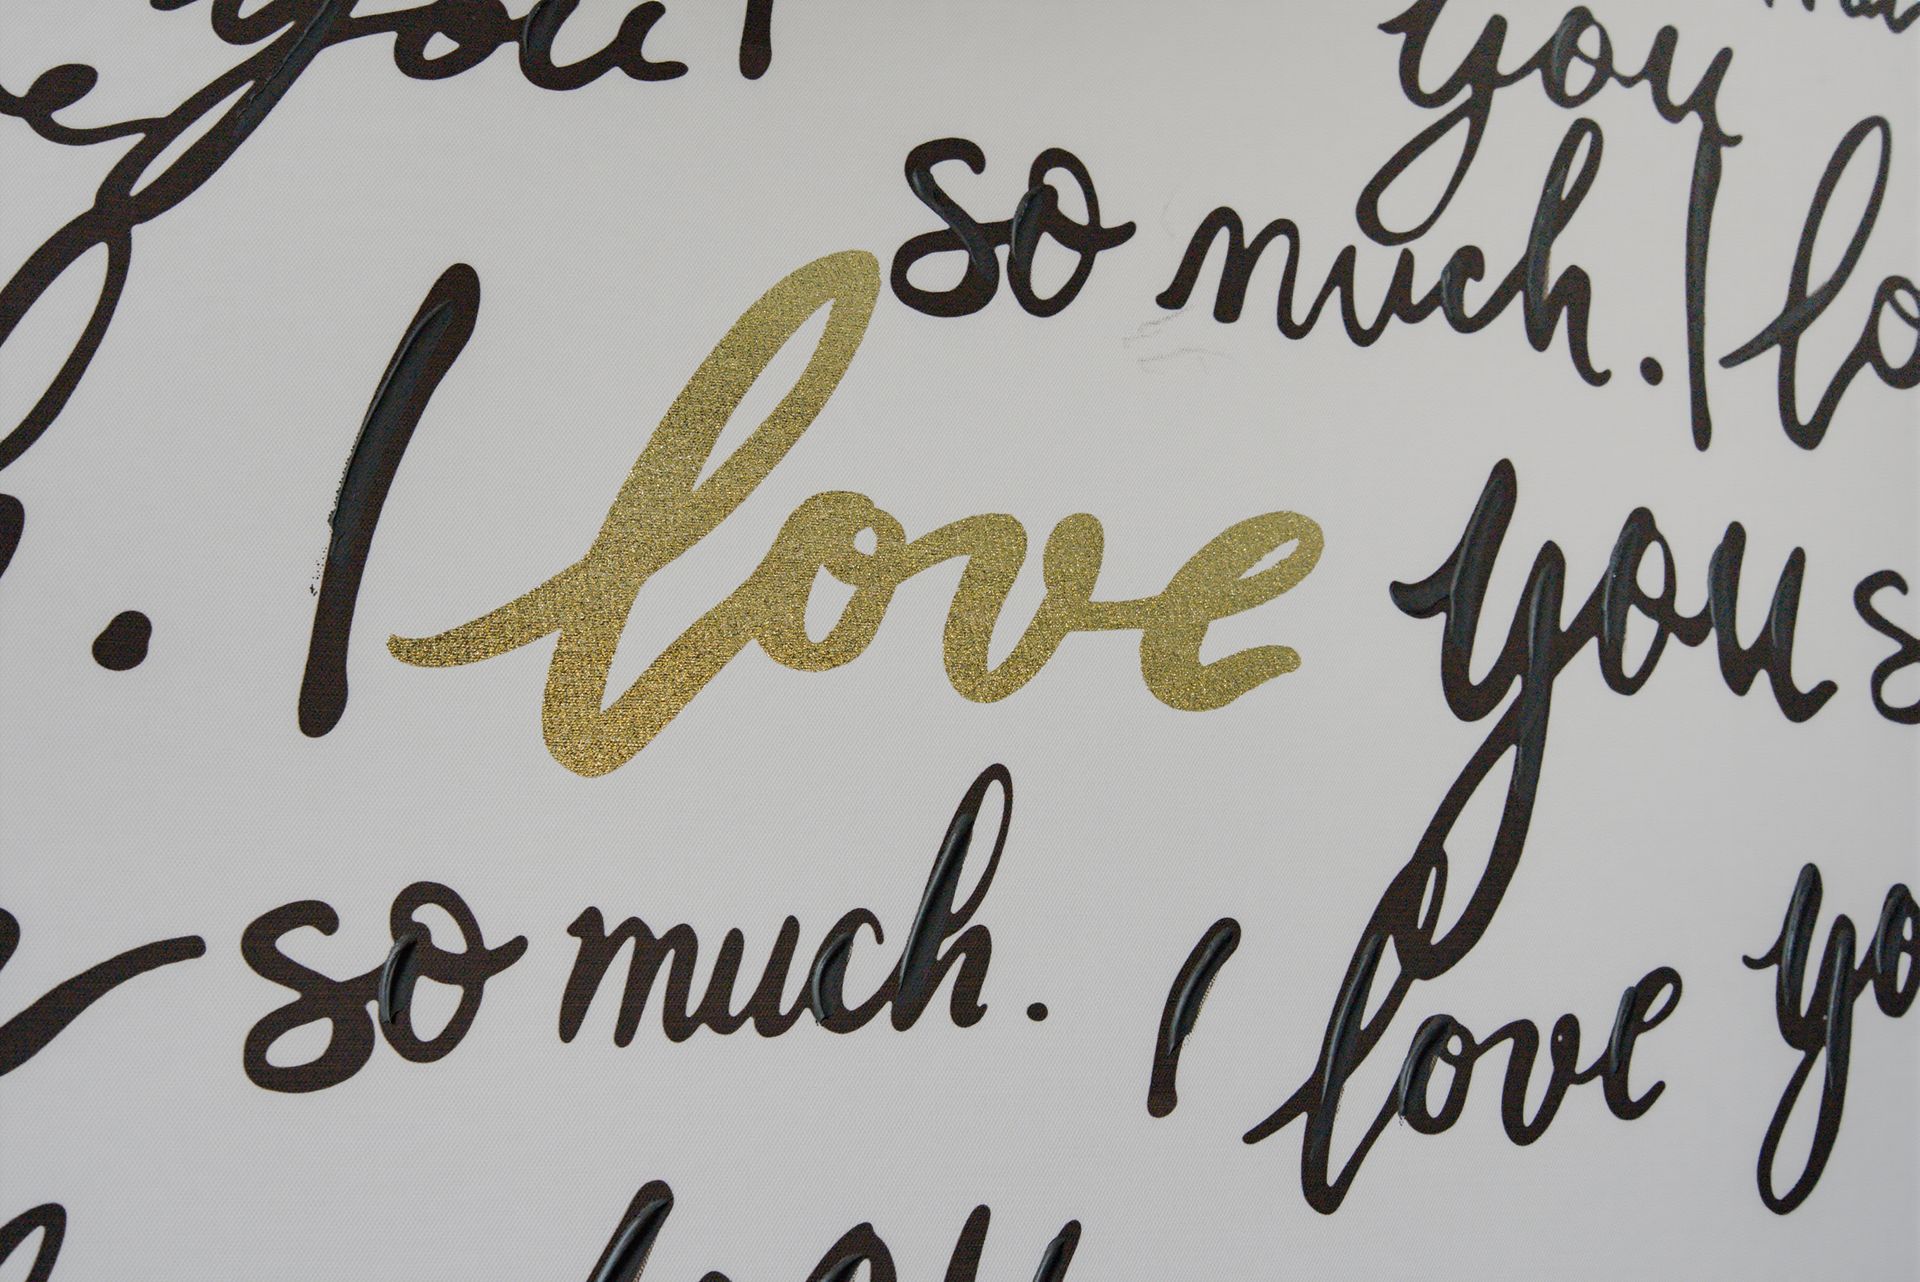 you I
you
so much. I lo
I love you s
so much. I love yo